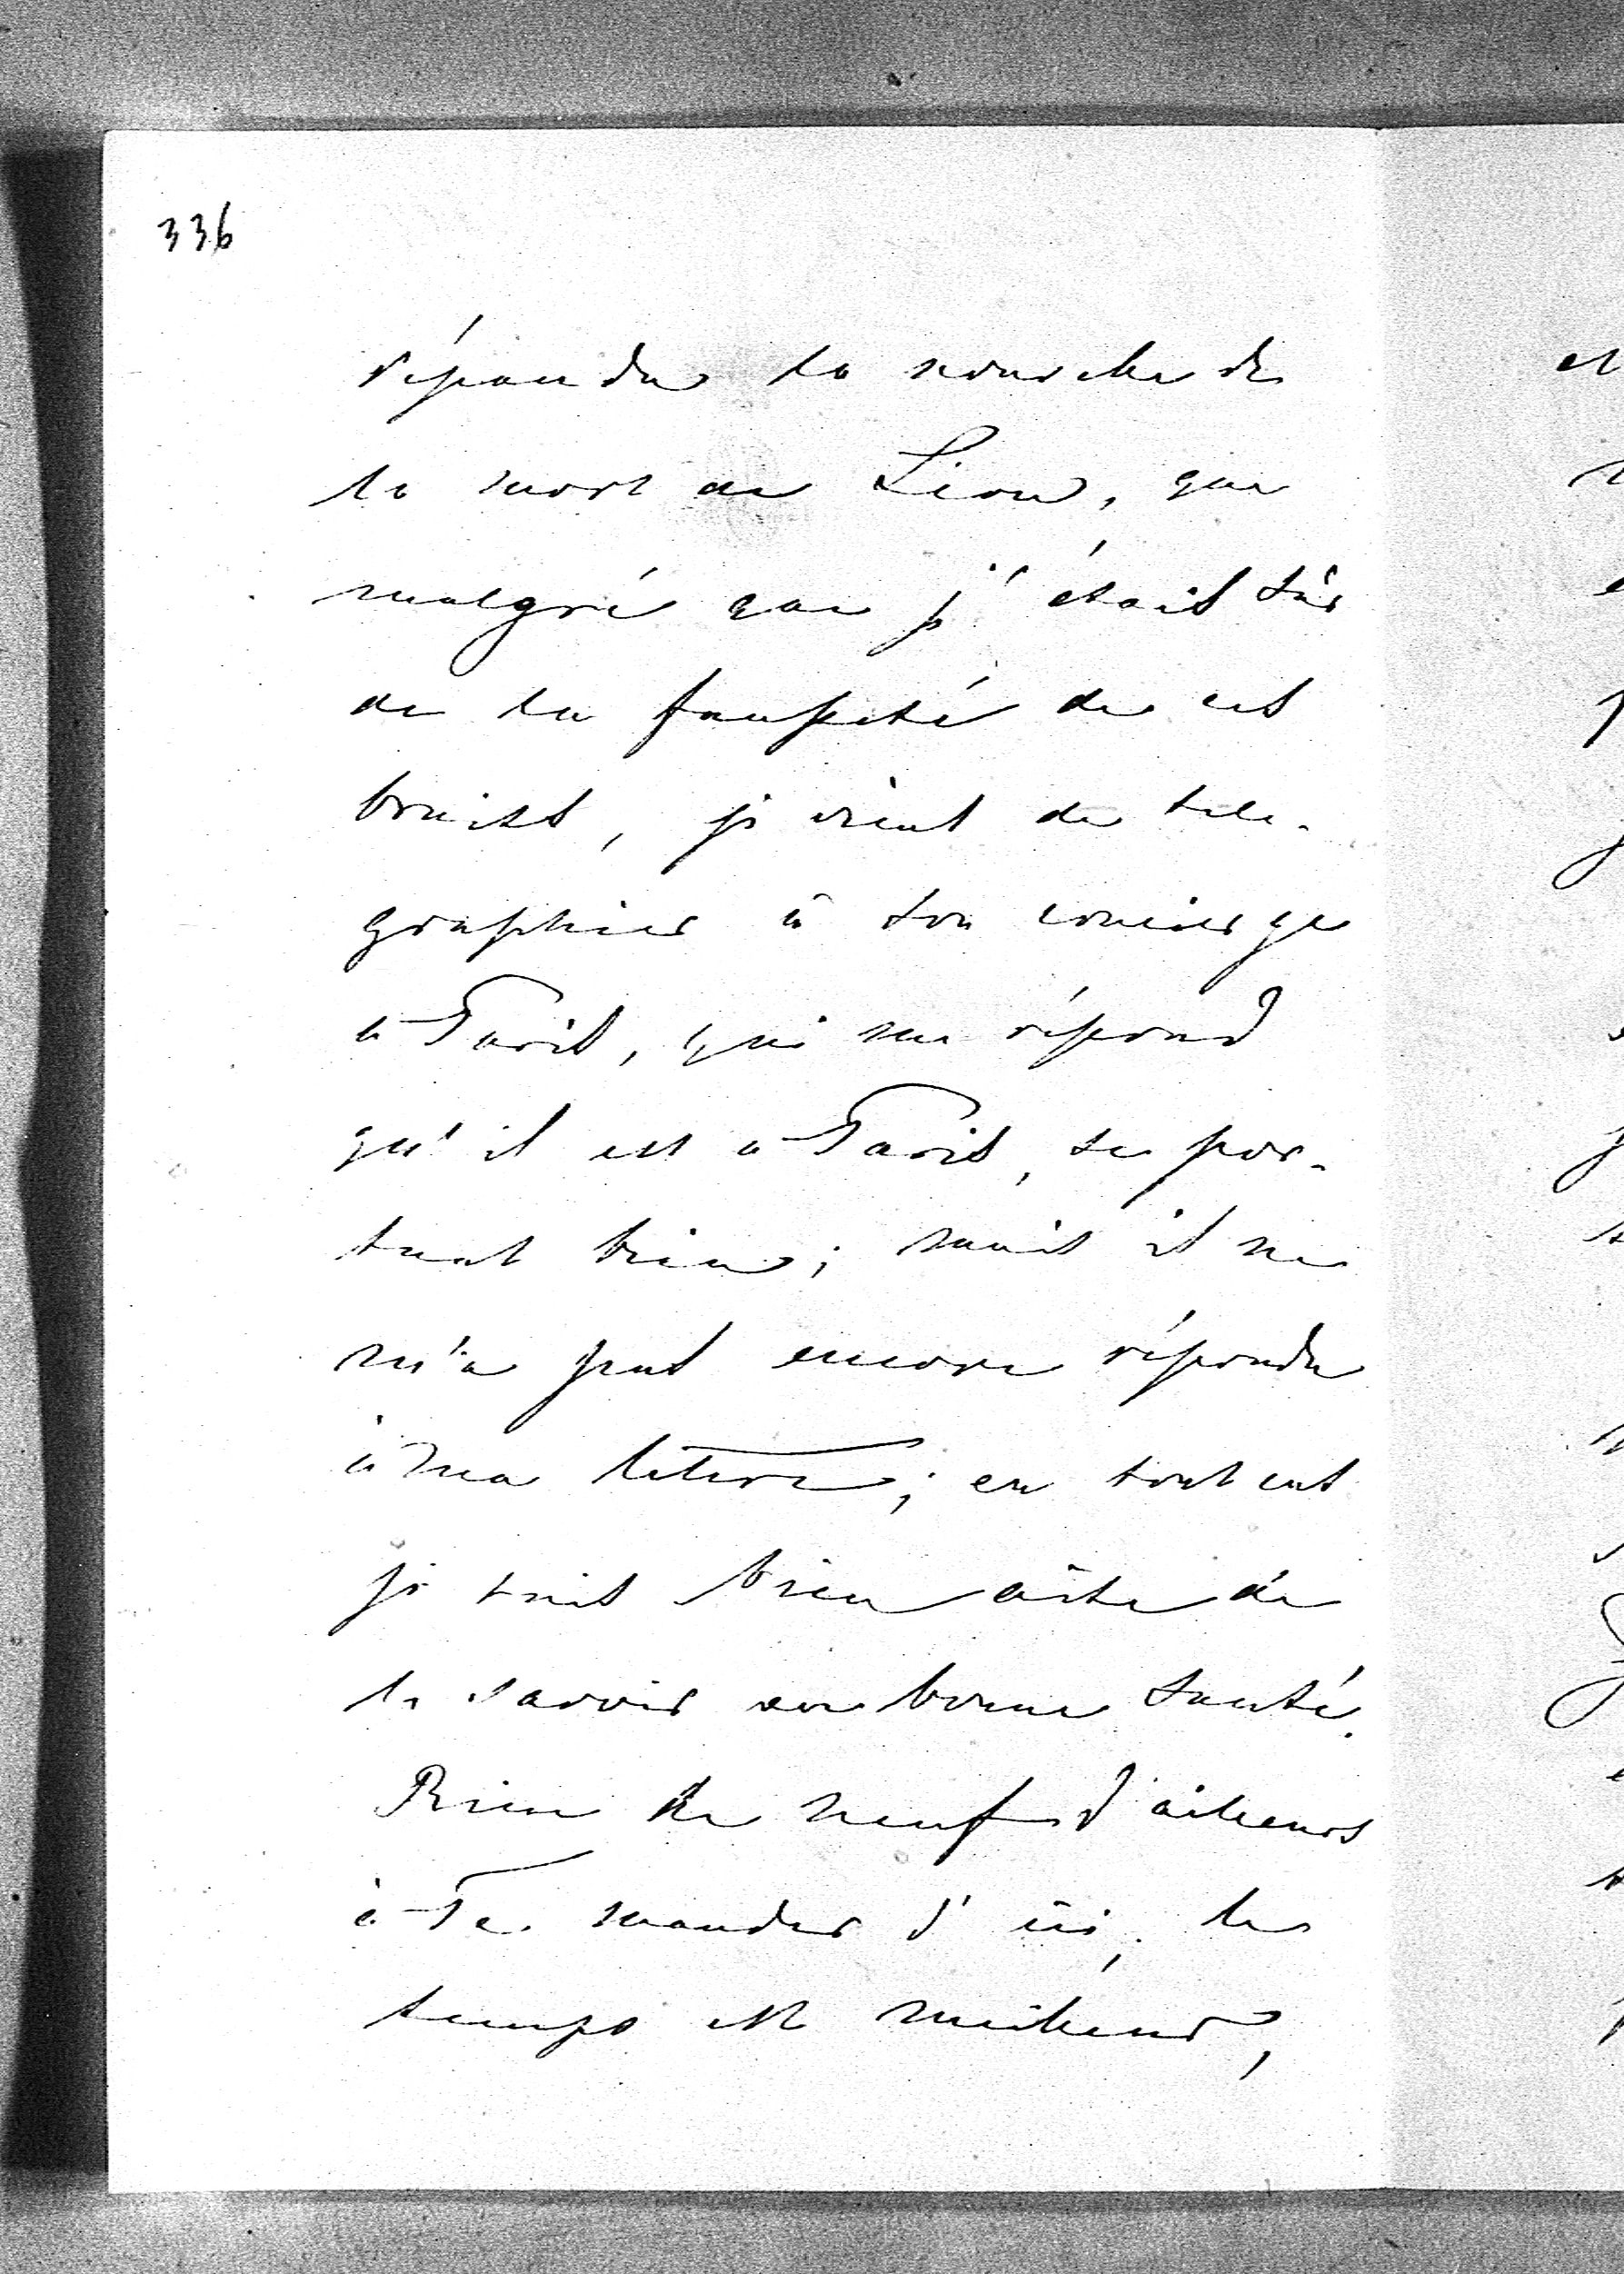 336
répandu la nouvelle de
la mort de Léon, que
malgré que j'étais sûr
de la fausseté de ces
bruits, je viens de télé-
graphier à son concierge
à Paris, qui me répond
qu'il est à Paris, se por-
tant bien; mais il ne
m'a pas encore répondu
à ma lettre; en tout cas
je suis bien aise de
le savoir en bonne santé.
Rien de neuf d'ailleurs
à Te mander d'ici, le
temps est meilleur,